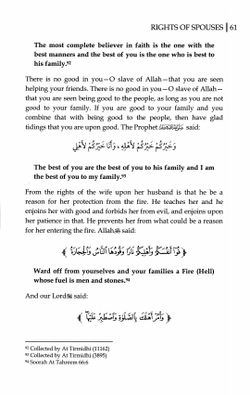 RIGHTS OF SPOUSES | 61
The most complete believer in faith is the one with the
best manners and the best of you is the one who is best to
his family.⁹²
There is no good in you—O slave of Allah—that you are seen
helping your friends. There is no good in you—O slave of Allah—
that you are seen being good to the people, as long as you are not
good to your family. If you are good to your family and you
combine that with being good to the people, then have glad
tidings that you are upon good. The Prophet ﷺ said:
وَخَيْرُكُمْ خَيْرُكُمْ لِأَهْلِهِ، وَأَنَا خَيْرُكُمْ لِأَهْلِي
The best of you are the best of you to his family and I am
the best of you to my family.⁹³
From the rights of the wife upon her husband is that he be a
reason for her protection from the fire. He teaches her and he
enjoins her with good and forbids her from evil, and enjoins upon
her patience in that. He prevents her from what could be a reason
for her entering the fire. Allah said:
﴿ قُوٓا۟ أَنفُسَكُمْ وَأَهْلِيكُمْ نَارًا وَقُودُهَا ٱلنَّاسُ وَٱلْحِجَارَةُ ﴾
Ward off from yourselves and your families a Fire (Hell)
whose fuel is men and stones.⁹⁴
And our Lord said:
﴿ وَأْمُرْ أَهْلَكَ بِٱلصَّلَوٰةِ وَٱصْطَبِرْ عَلَيْهَا ﴾
⁹² Collected by At Tirmidhi (11162)
⁹³ Collected by At Tirmidhi (3895)
⁹⁴ Soorah At Tahreem 66:6